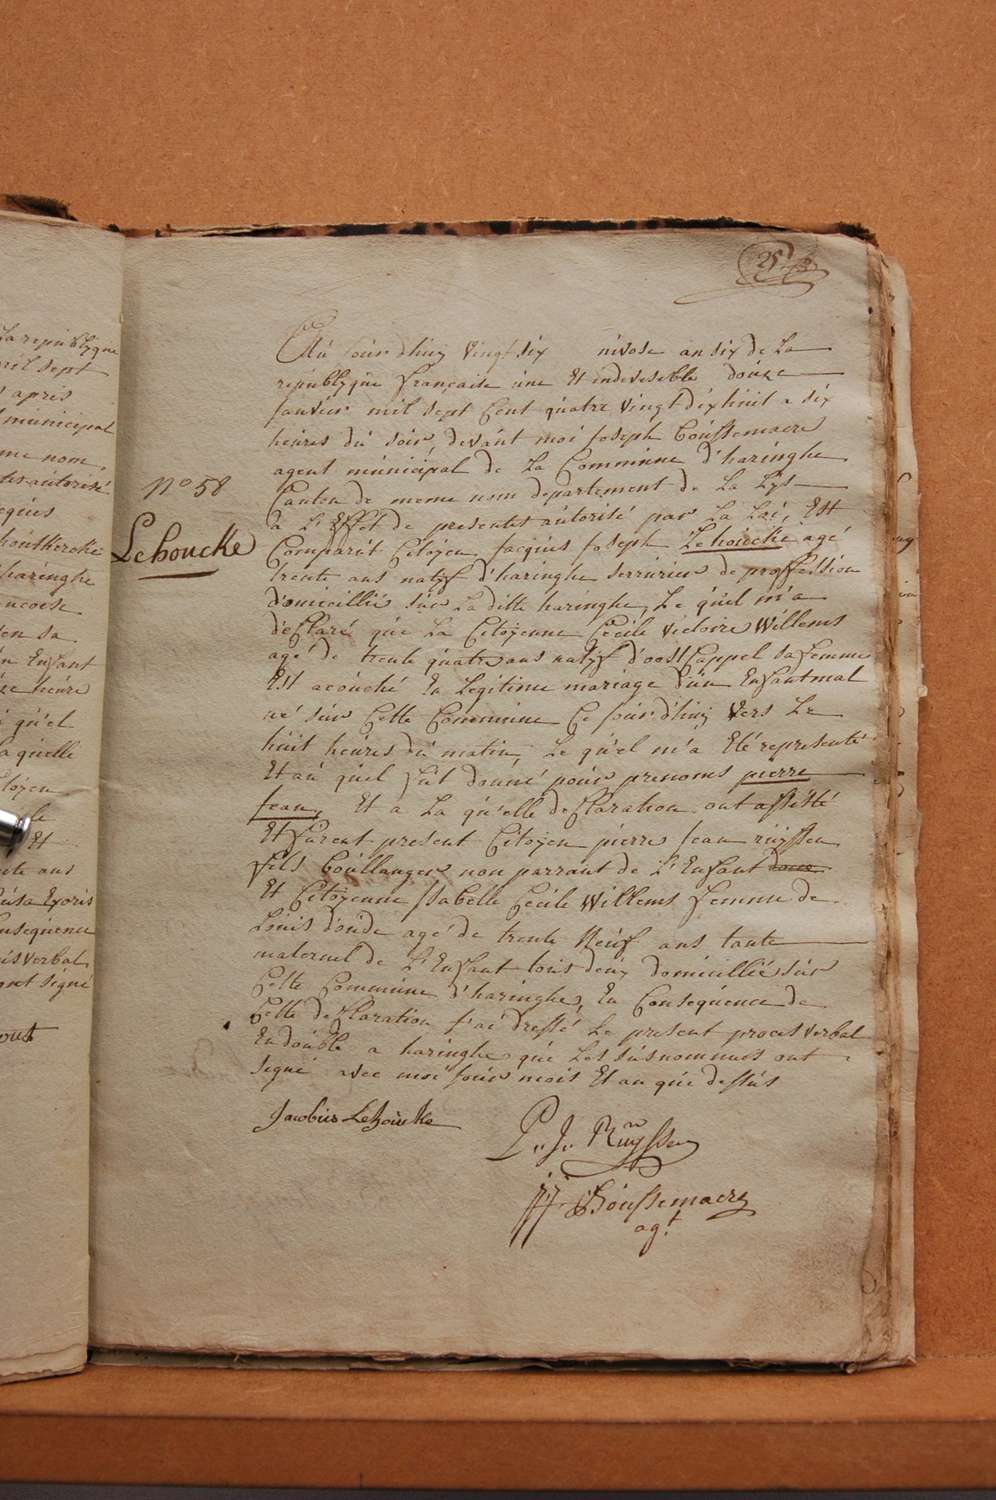 25
Au jourdhuy vingt six nivose an six de La
republyque française une Et indevesible douze
Janvier mil sept Cent quatre vingt dix huit a six
heures du soir, devant moi joseph Coussemacre
agent municipal de La Commune d'haringhe
Canton de meme nom departement de La Lys
a L'Effet de presentes autorisé par La Loi, Est
Comparut Citoyen jacques joseph Lehoucke agé
trente ans natyf d'haringhe serrurier de proffession
domicillié sur La ditte haringhe, Le quel m'a
deklaré que La Citoyenne Cecile victoire Willems
agé de trente quatre ans natyf d'oost Cappel sa femme
Est acouché En Legitime mariage d'un Enfant mal
né sur Cette Commune Ce jour d'huy vers Le
huit heures du matin, Le quel m'a Eté representé
Et au quel fut donné pour prenoms pierre
jean, Et a La qu'elle deklaration ont assisté
Et furent present Citoyen pierre jean ruyssen
fils boullanger non parrant de L'Enfant
Et Citoyenne Isabelle Cecile Willems femme de
Louis d'onde agé de trente Neuf ans tante
maternel de L'Enfant tous deux domicillié sur
Cette Commune d'haringhe, En Consequence de
Cette deklaration j'ai dressé Le present proces verbal
En double a haringhe que Les susnommes ont
signé avec moi jour mois Et an que dessus
Jacobus Lehoucke
P. J. Ruyssen
Coussemacre
agt
N° 58
Lehoucke
La republyque
mil sept
apris
municipal
me nom,
autorisé
haringhe
Enfant
heure
qu'el
Laquelle
Citoyen
Et
ans
Consequence
verbal
ont signé